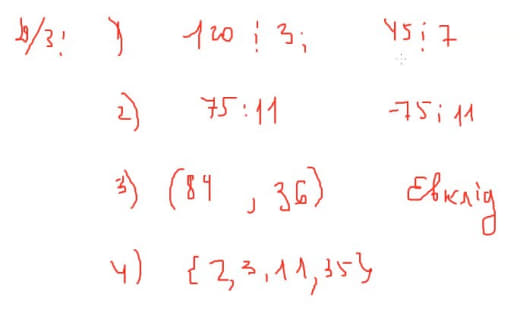 д/з: 1) 120 ⋮ 3; 45 ⋮ 7
2) 75 : 11 -75 : 11
3) (84, 36) Евклід
4) {2, 3, 11, 35}